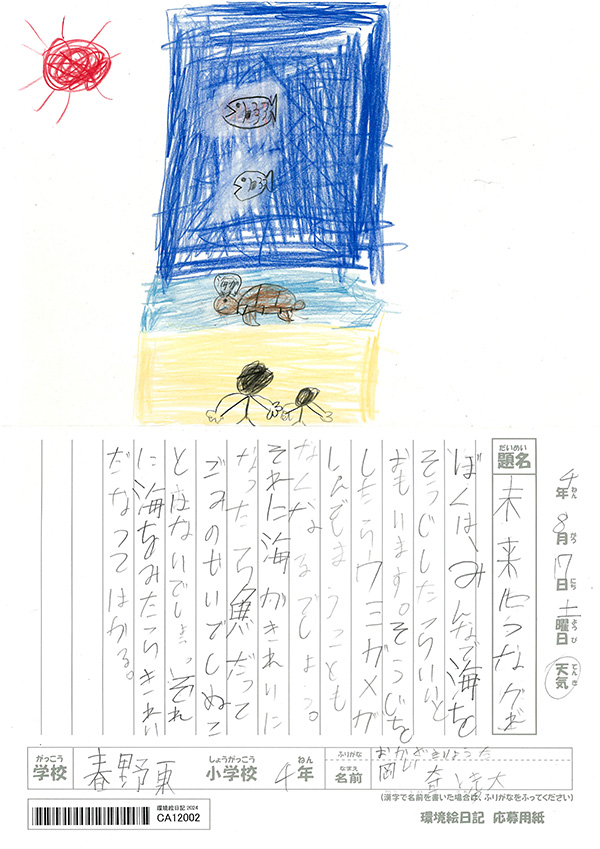 4年 8月 17日 土曜日 天気
ねん がつ にち ようび てんき
だいめい
題名 未来
ぼくは、みんなで海を
そうじしたらいいと
おもいます。そうじを
したらウミガメが
しんでしまうことも
なくなるでしょう。
それに海がきれいに
なったら魚だって
ごみのせいでしぬこ
とはないでしょう。それ
に海をみたらきれい
だなってはかる。
がっこう しょうがっこう ねん
学校 春野東 小学校 4年
ふりがな
なまえ
名前 岡
(漢字で名前を書いた場合は、ふりがなをふってください)
環境絵日記 2024
CA12002
環境絵日記 応募用紙